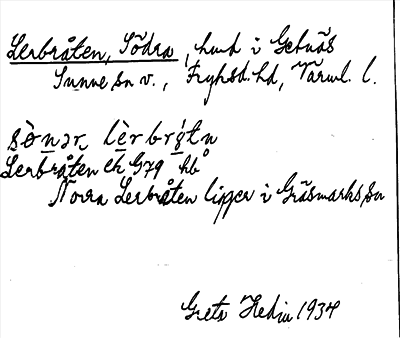 Lerbråten, Södra, hmd i Getnäs
Sunne sn v., Fryksd. hd, Värml. l.
sö̀nər lèrbrɷ́tn
Lerbråten ek G79 hbå
Norra Lerbråten ligger i Gräsmarks sn
Greta Hedin 1934